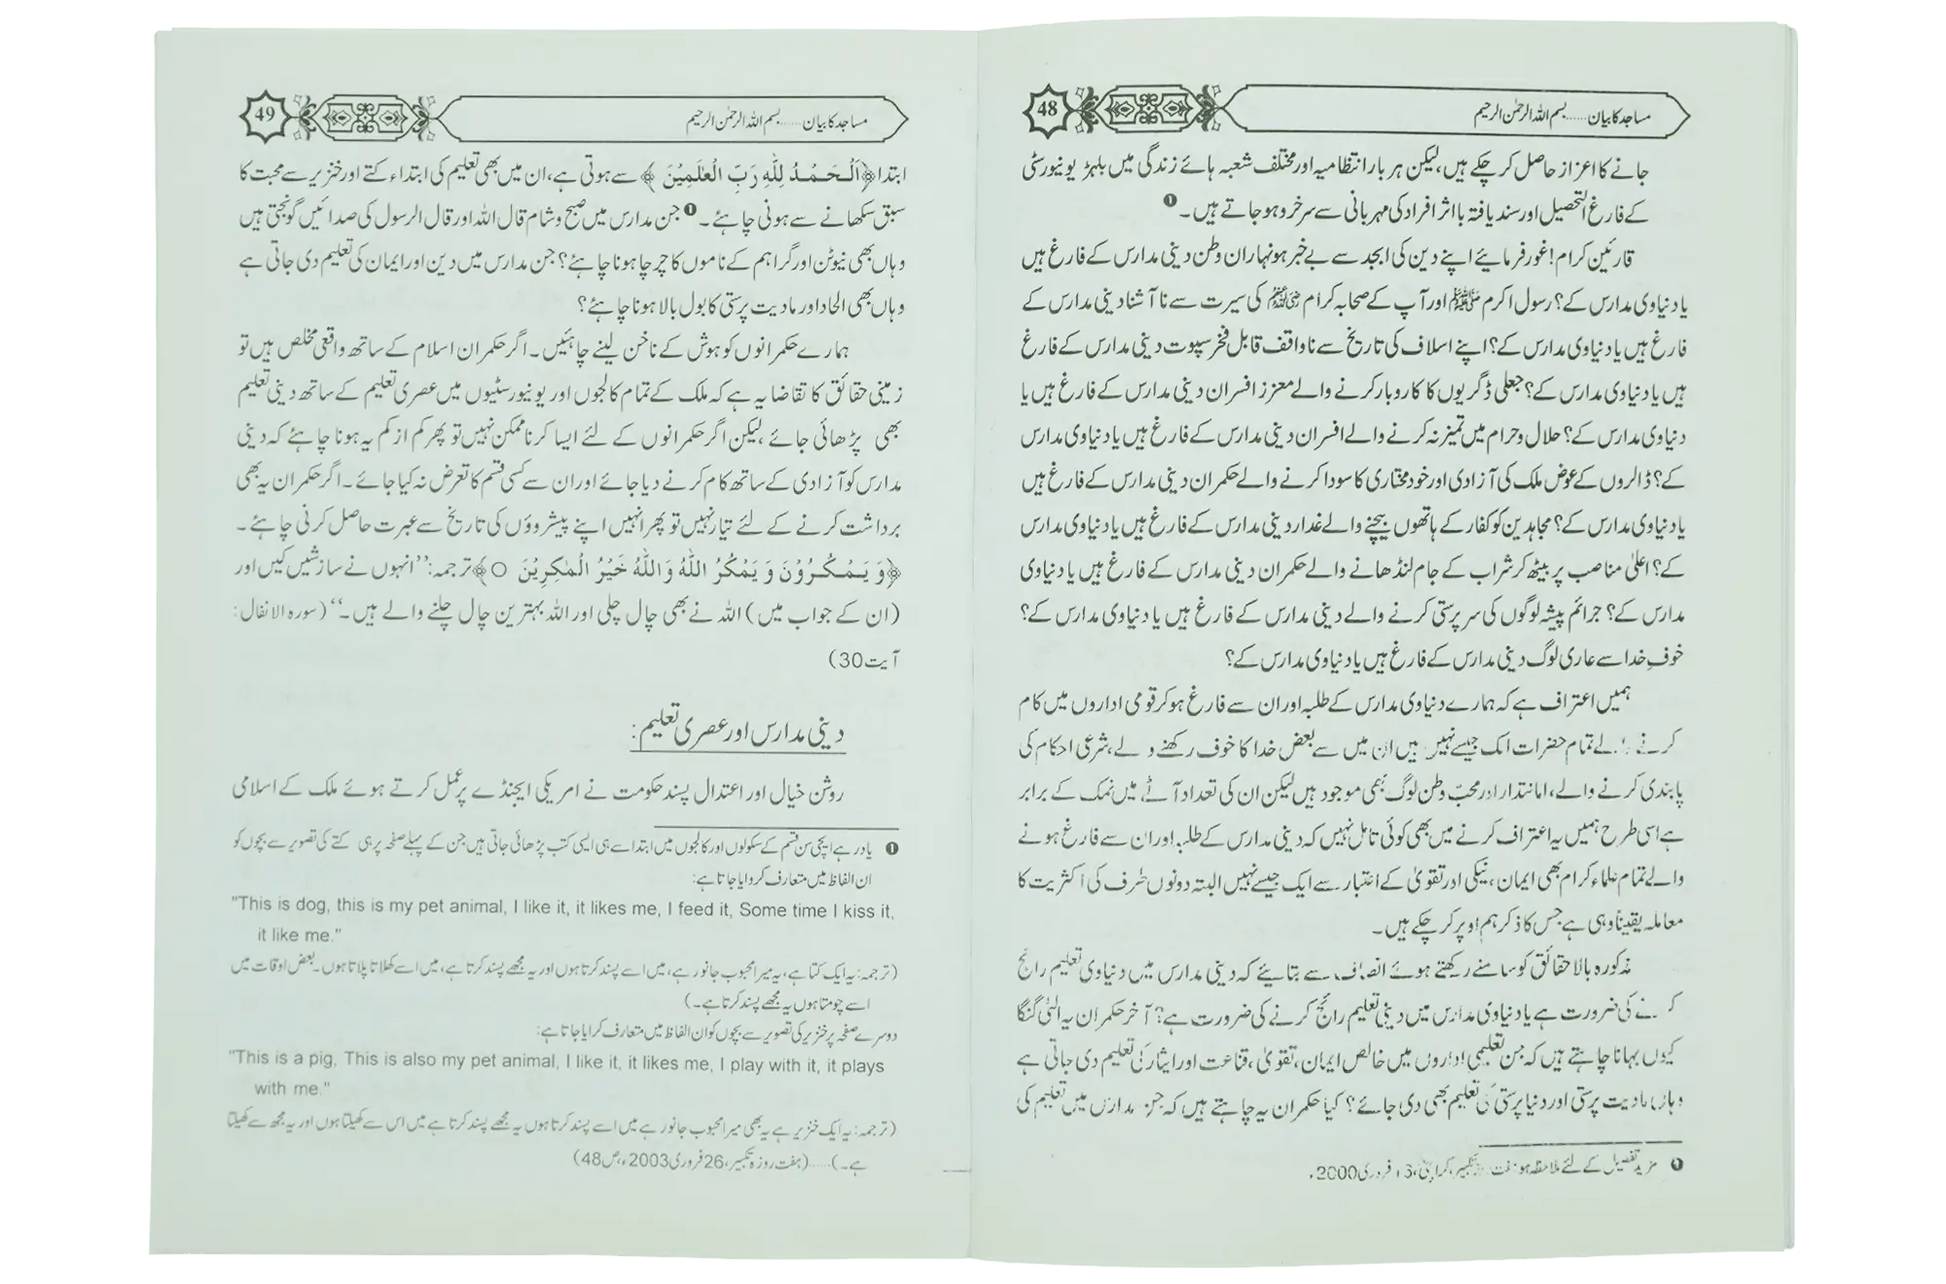 مساجد کا بیان......بسم اللہ الرحمٰن الرحیم
48
جانے کا اعزاز حاصل کر چکے ہیں، لیکن ہر بار انتظامیہ اور مختلف شعبہ ہائے زندگی میں بلہڑ یونیورسٹی
کے فارغ التحصیل اور سند یافتہ با اثر افراد کی مہربانی سے سرخرو ہو جاتے ہیں۔ ❶
قارئین کرام! غور فرمایئے اپنے دین کی ابجد سے بے خبر ہونہاران وطن دینی مدارس کے فارغ ہیں
یا دنیاوی مدارس کے؟ رسول اکرم ﷺ اور آپ کے صحابہ کرام کی سیرت سے نا آشنا دینی مدارس کے
فارغ ہیں یا دنیاوی مدارس کے؟ اپنے اسلاف کی تاریخ سے ناواقف قابل فخر سپوت دینی مدارس کے فارغ
ہیں یا دنیاوی مدارس کے؟ جعلی ڈگریوں کا کاروبار کرنے والے معزز افسران دینی مدارس کے فارغ ہیں یا
دنیاوی مدارس کے؟ حلال و حرام میں تمیز نہ کرنے والے افسران دینی مدارس کے فارغ ہیں یا دنیاوی مدارس
کے؟ ڈالروں کے عوض ملک کی آزادی اور خود مختاری کا سودا کرنے والے حکمران دینی مدارس کے فارغ ہیں
یا دنیاوی مدارس کے؟ مجاہدین کو کفار کے ہاتھوں بیچنے والے غدار دینی مدارس کے فارغ ہیں یا دنیاوی مدارس
کے؟ اعلیٰ مناصب پر بیٹھ کر شراب کے جام لنڈھانے والے حکمران دینی مدارس کے فارغ ہیں یا دنیاوی
مدارس کے؟ جرائم پیشہ لوگوں کی سرپرستی کرنے والے دینی مدارس کے فارغ ہیں یا دنیاوی مدارس کے؟
خوفِ خدا سے عاری لوگ دینی مدارس کے فارغ ہیں یا دنیاوی مدارس کے؟
ہمیں اعتراف ہے کہ ہمارے دنیاوی مدارس کے طلبہ اور ان سے فارغ ہو کر قومی اداروں میں کام
کرنے والے تمام حضرات ایک جیسے نہیں ہیں ان میں سے بعض خدا کا خوف رکھنے والے، شرعی احکام کی
پابندی کرنے والے، امانتدار اور محبّ وطن لوگ بھی موجود ہیں لیکن ان کی تعداد آٹے میں نمک کے برابر
ہے اسی طرح ہمیں یہ اعتراف کرنے میں بھی کوئی تامل نہیں کہ دینی مدارس کے طلبہ اور ان سے فارغ ہونے
والے تمام علماء کرام بھی ایمان، نیکی اور تقویٰ کے اعتبار سے ایک جیسے نہیں البتہ دونوں طرف کی اکثریت کا
معاملہ یقیناً وہی ہے جس کا ذکر ہم اوپر کر چکے ہیں۔
مذکورہ بالا حقائق کو سامنے رکھتے ہوئے انصاف سے بتایئے کہ دینی مدارس میں دنیاوی تعلیم رائج
کرنے کی ضرورت ہے یا دنیاوی مدارس میں دینی تعلیم رائج کرنے کی ضرورت ہے؟ آخر حکمران یہ الٹی گنگا
کیوں بہانا چاہتے ہیں کہ جن تعلیمی اداروں میں خالص ایمان، تقویٰ، قناعت اور ایثار کی تعلیم دی جاتی ہے
وہاں مادیت پرستی اور دنیا پرستی کی تعلیم بھی دی جائے؟ کیا حکمران یہ چاہتے ہیں کہ جن مدارس میں تعلیم کی
❶ مزید تفصیل کے لئے ملاحظہ ہو تکبیر، کراچی، فروری 2000ء
مساجد کا بیان......بسم اللہ الرحمٰن الرحیم
49
ابتدا ﴿اَلْحَمْدُ لِلّٰهِ رَبِّ الْعٰلَمِيْنَ﴾ سے ہوتی ہے، ان میں بھی تعلیم کی ابتداء کتے اور خنزیر سے محبت کا
سبق سکھانے سے ہونی چاہئے۔ ❶ جن مدارس میں صبح و شام قال اللہ اور قال الرسول کی صدائیں گونجتی ہیں
وہاں بھی نیوٹن اور گراہم کے ناموں کا چرچا ہونا چاہئے؟ جن مدارس میں دین اور ایمان کی تعلیم دی جاتی ہے
وہاں بھی الحاد اور مادیت پرستی کا بول بالا ہونا چاہئے؟
ہمارے حکمرانوں کو ہوش کے ناخن لینے چاہئیں۔ اگر حکمران اسلام کے ساتھ واقعی مخلص ہیں تو
زمینی حقائق کا تقاضا یہ ہے کہ ملک کے تمام کالجوں اور یونیورسٹیوں میں عصری تعلیم کے ساتھ دینی تعلیم
بھی پڑھائی جائے، لیکن اگر حکمرانوں کے لئے ایسا کرنا ممکن نہیں تو پھر کم از کم یہ ہونا چاہئے کہ دینی
مدارس کو آزادی کے ساتھ کام کرنے دیا جائے اور ان سے کسی قسم کا تعرض نہ کیا جائے۔ اگر حکمران یہ بھی
برداشت کرنے کے لئے تیار نہیں تو پھر انہیں اپنے پیشروؤں کی تاریخ سے عبرت حاصل کرنی چاہئے۔
﴿وَ يَمْكُرُوْنَ وَ يَمْكُرُ اللّٰهُ وَاللّٰهُ خَيْرُ الْمٰكِرِيْنَ ○﴾ ترجمہ: ’’انہوں نے سازشیں کیں اور
(ان کے جواب میں) اللہ نے بھی چال چلی اور اللہ بہترین چال چلنے والے ہیں۔‘‘ (سورہ الانفال:
آیت 30)
دینی مدارس اور عصری تعلیم:
روشن خیال اور اعتدال پسند حکومت نے امریکی ایجنڈے پر عمل کرتے ہوئے ملک کے اسلامی
❶ یاد رہے ایچی سن قسم کے سکولوں اور کالجوں میں ابتدا سے ہی ایسی کتب پڑھائی جاتی ہیں جن کے پہلے صفحہ پر ہی کتے کی تصویر سے بچوں کو
ان الفاظ میں متعارف کروایا جاتا ہے:
"This is dog, this is my pet animal, I like it, it likes me, I feed it, Some time I kiss it,
it like me."
(ترجمہ: یہ ایک کتا ہے، یہ میرا محبوب جانور ہے، میں اسے پسند کرتا ہوں اور یہ مجھے پسند کرتا ہے، میں اسے کھلاتا پلاتا ہوں۔ بعض اوقات میں
اسے چومتا ہوں یہ مجھے پسند کرتا ہے۔)
دوسرے صفحہ پر خنزیر کی تصویر سے بچوں کو ان الفاظ میں متعارف کرایا جاتا ہے:
"This is a pig, This is also my pet animal, I like it, it likes me, I play with it, it plays
with me."
(ترجمہ: یہ ایک خنزیر ہے یہ بھی میرا محبوب جانور ہے میں اسے پسند کرتا ہوں یہ مجھے پسند کرتا ہے میں اس سے کھیلتا ہوں اور یہ مجھ سے کھیلتا
ہے۔).....(ہفت روزہ تکبیر، 26 فروری 2003ء، ص 48)